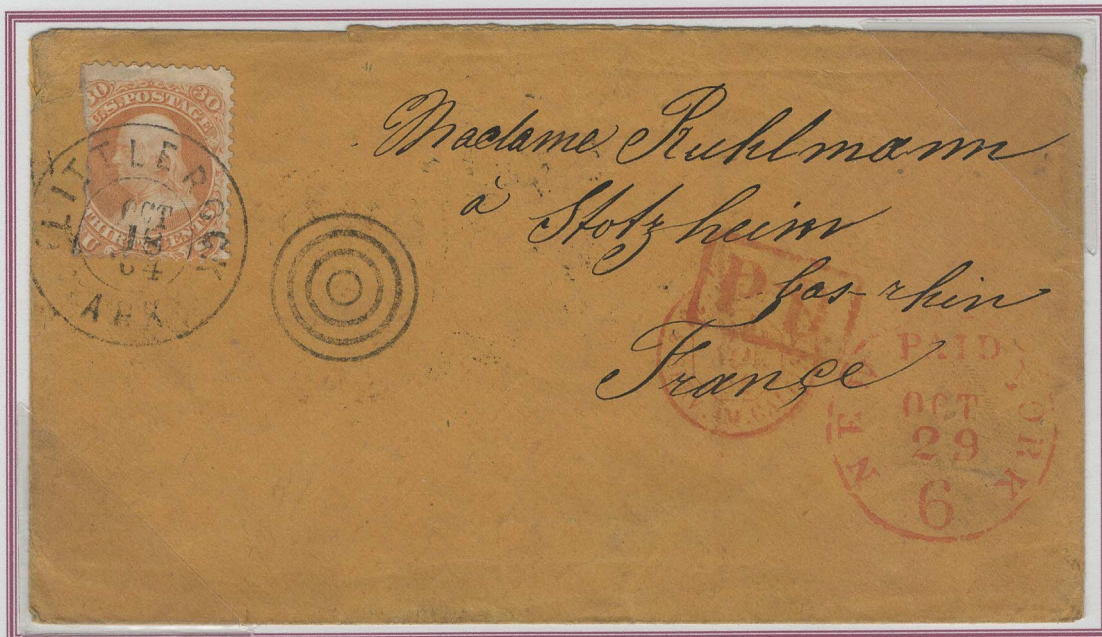 30 30
U.S. POSTAGE
LITTLE ROCK
OCT
18
64
ARK
Madame Ruhlmann
à Stotzheim
bas-rhin
France
NEW YORK
PAID
OCT
29
6